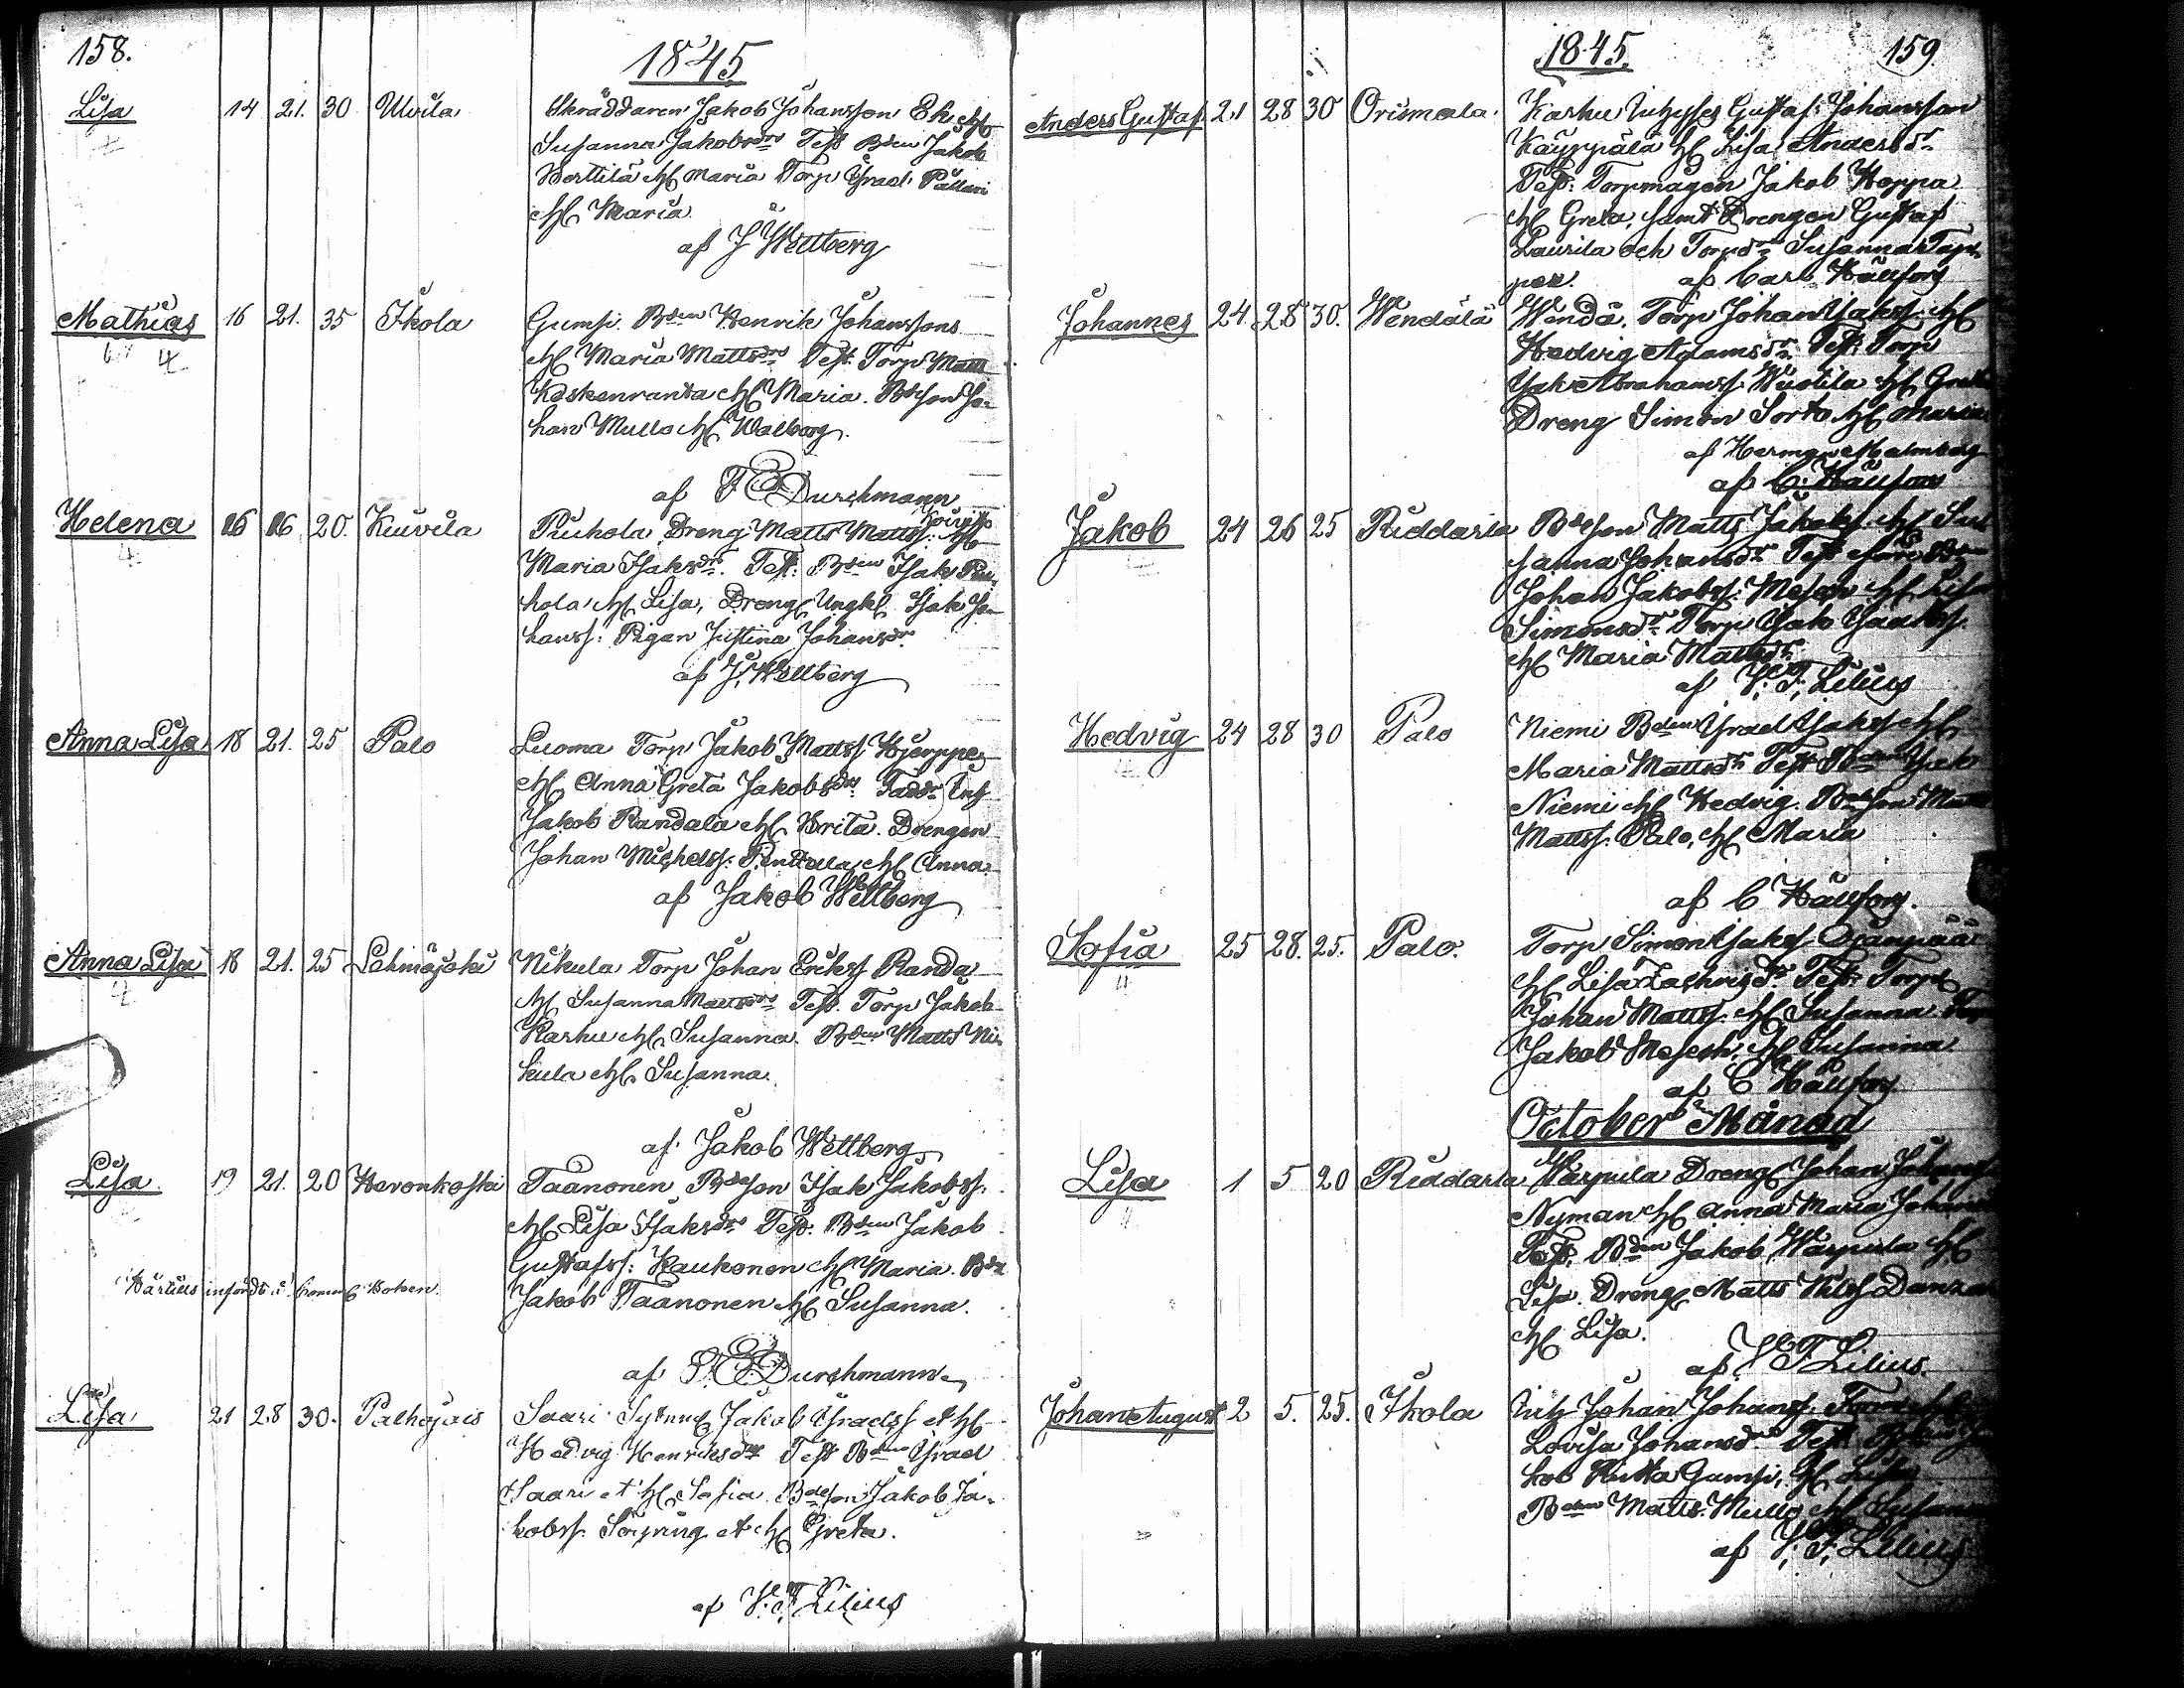 158.
1845
Lisa 14 21. 30 Ulvila Skräddaren Jakob Johansson Ek et H
Susanna Jakobsdr Test Bden Jakob
Berttilä et H Maria Torp Israel
et H Maria
af J Wettberg
Mathias 16 21. 35 Ikola Gumsi Bden Henrik Johanssons
et H Maria Mattsdr Test. Torp Matts
Koskenranta et H Maria. Bdeson Jo-
han Mullo et H Walborg.
af F E Durchmann
Helena 16 16 20. Kuivila Piuhola Dreng Matts Mattss: et H
Maria Isaksdr. Test: Bden Isak Piu-
hola et H Lisa, Drengs Ungkl Isak Jo-
hanss: Pigan Justina Johansdr
af J, Wettberg
Anna Lisa 18 21. 25 Palo Luoma Torp Jakob Mattss Hjerppe
et H Anna Greta Jakobsdr: Inh
Jakob Randala et H Brita. Drengen
Johan Michelss: Penttala et H Anna
af Jakob Wettberg
Anna Lisa 18 21. 25 Lehmäjoki Nikula Torp Johan Erikss Randa
et H Susanna Mattsdr Test. Torp Jakob
Karhu et H Susanna. Bden Matts Ni-
kula et H Susanna.
af Jakob Wettberg
Lisa 19 21. 20 Hevonkoski Taanonen Bdeson Isak Jakobss:
et H Lisa Isaksdr Test. Bden Jakob
Gustafss: Kaukonen et H Maria. Bde
Jakob Taanonen et H Susanna.
af F. E. Durchmann
Lisa 21 28 30. Palhojais Saari Jakob Israelss et H
Hedvig Henriksdr Test Bden Israel
Saari et H Sofia. Bdeson Jakob Ja-
kobss. Söyring et H Greta.
af V. F. Lilius
1845. 159
Anders Gustaf 21 28 30 Orismala. Karhu Inhyses Gustaf Johansson
Käyppälä H Lisa Andersdr
Test: Torpmågen Jakob Hoppa
et H Greta, samt Drengen Gustaf
Laurila och Torpdr Susanna Tap-
per. af Carl Hällfors
Johannes 24 28 30. Wendälä Wendä. Torp Johan Isakss. et H
Hedvig Adamsdr Test: Torp
Isak Abrahamss. Wuotila et H Greta
Dreng Simon Sorto et H Maria
af Herman Malmberg
af C. Hällfors
Jakob 24 26 25 Riddarla Bdeson Matts Jakobs. et H Su-
sanna Johansdr Test Bden
Johan Jakobss: et H Lisa
Simonsdr Torp Isak Isakss
et H Maria Mattsdr
af V. F. Lilius
Hedvig 24 28 30 Palo Niemi Bden Israel Isakss et H
Maria Mattsdr Test Bden Isak
Niemi et H Hedvig. Bdeson Matts
Mattss. Palo, et H Maria
af C Hällfors.
Sofia 25 28. 25. Palo. Torp Simon Isakss
et H Lisa Zachrisdr. Test: Torp
Johan Mattss. et H Susanna Torp
Jakob et H Susanna
af C Hällfors
October Månad
Lisa 1 5 20 Riddarla Warpula Drengs Johan Johanss
Nyman et H Anna Maria Johans
Test. Bden Jakob Warpula et H
Lisa. Dreng Matts
et H Lisa.
af V. F. Lilius.
Johan August 2 5. 25. Ikola Inh Johan Johanss.
Lovisa Johansdr Test
kob Gumsi, et H Lisa
Bden Matts Mullo et H Susanna
af V. F. Lilius